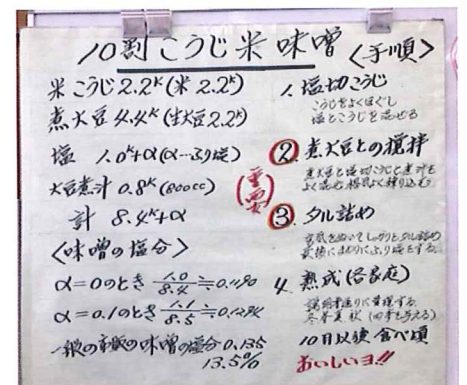 10割こうじ米味噌〈手順〉
米こうじ2.2ᵏ(米2.2ᵏ)
煮大豆4.4ᵏ(生大豆2.2ᵏ)
塩 1.0ᵏ+α(α…ふり塩)
大豆煮汁 0.8ᵏ(800cc)
計 8.4ᵏ+α
〈味噌の塩分〉
α=0のとき 1.0/8.4≒0.1190
α=0.1のとき 1.1/8.5≒0.1294
一般の市販の味噌の塩分0.135
13.5%
1. 塩切こうじ
こうじをよくほぐし
塩とこうじを混ぜる
(重要)
② 煮大豆との撹拌
煮大豆と塩切こうじと煮汁を
よく混ぜ
③. タル詰め
空気をぬいてしっかりとタル詰め
最後にまわりにふり塩をする
4. 熟成(各家庭)
説明書通りに管理する
冬春夏秋(四季を与える)
10月以後食べ頃
おいしいヨ!!